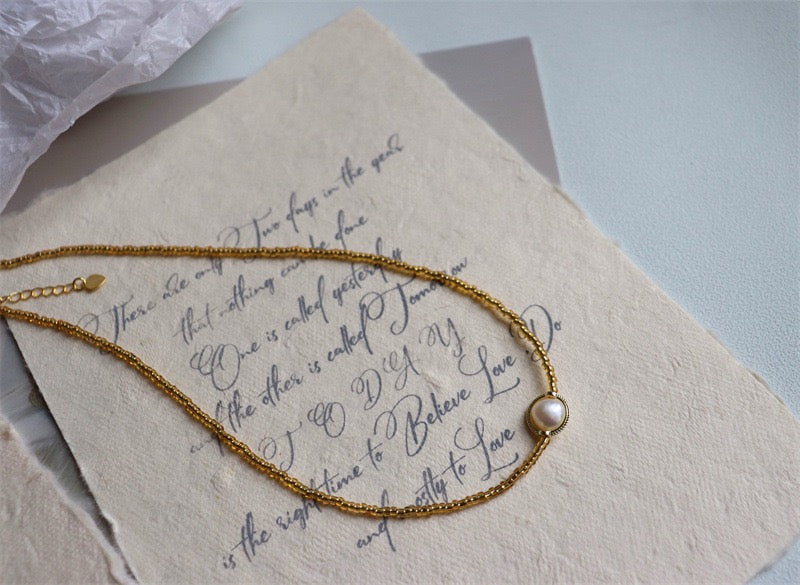 There are only Two days in the year
that nothing can be done
One is called yesterday
and the other is called Tomorrow
TODAY
is the right time to Believe Love Do
and mostly to Love